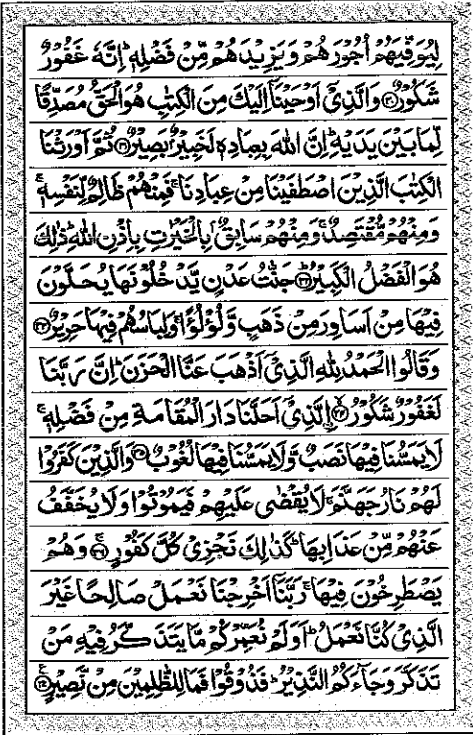 لِيُوَفِّيَهُمْ اُجُوْرَهُمْ وَيَزِيْدَهُمْ مِّنْ فَضْلِهٖ ؕ اِنَّهٗ غَفُوْرٌ
شَكُوْرٌ ۝۳۰ وَالَّذِيْۤ اَوْحَيْنَاۤ اِلَيْكَ مِنَ الْكِتٰبِ هُوَ الْحَقُّ مُصَدِّقًا
لِّمَا بَيْنَ يَدَيْهِ ؕ اِنَّ اللّٰهَ بِعِبَادِهٖ لَخَبِيْرٌۢ بَصِيْرٌ ۝۳۱ ثُمَّ اَوْرَثْنَا
الْكِتٰبَ الَّذِيْنَ اصْطَفَيْنَا مِنْ عِبَادِنَا ۚ فَمِنْهُمْ ظَالِمٌ لِّنَفْسِهٖ ۚ
وَمِنْهُمْ مُّقْتَصِدٌ ۚ وَمِنْهُمْ سَابِقٌۢ بِالْخَيْرٰتِ بِاِذْنِ اللّٰهِ ؕ ذٰلِكَ
هُوَ الْفَضْلُ الْكَبِيْرُ ۝۳۲ جَنّٰتُ عَدْنٍ يَّدْخُلُوْنَهَا يُحَلَّوْنَ
فِيْهَا مِنْ اَسَاوِرَ مِنْ ذَهَبٍ وَّلُؤْلُؤًا ۚ وَلِبَاسُهُمْ فِيْهَا حَرِيْرٌ ۝۳۳
وَقَالُوا الْحَمْدُ لِلّٰهِ الَّذِيْۤ اَذْهَبَ عَنَّا الْحَزَنَ ؕ اِنَّ رَبَّنَا
لَغَفُوْرٌ شَكُوْرُ ۝۳۴ اۨلَّذِيْۤ اَحَلَّنَا دَارَ الْمُقَامَةِ مِنْ فَضْلِهٖ ۚ
لَا يَمَسُّنَا فِيْهَا نَصَبٌ وَّلَا يَمَسُّنَا فِيْهَا لُغُوْبٌ ۝۳۵ وَالَّذِيْنَ كَفَرُوْا
لَهُمْ نَارُ جَهَنَّمَ ۚ لَا يُقْضٰى عَلَيْهِمْ فَيَمُوْتُوْا وَلَا يُخَفَّفُ
عَنْهُمْ مِّنْ عَذَابِهَا ؕ كَذٰلِكَ نَجْزِيْ كُلَّ كَفُوْرٍ ۝۳۶ وَهُمْ
يَصْطَرِخُوْنَ فِيْهَا ۚ رَبَّنَاۤ اَخْرِجْنَا نَعْمَلْ صَالِحًا غَيْرَ
الَّذِيْ كُنَّا نَعْمَلُ ؕ اَوَلَمْ نُعَمِّرْكُمْ مَّا يَتَذَكَّرُ فِيْهِ مَنْ
تَذَكَّرَ وَجَآءَكُمُ النَّذِيْرُ ؕ فَذُوْقُوْا فَمَا لِلظّٰلِمِيْنَ مِنْ نَّصِيْرٍ ۝۳۷